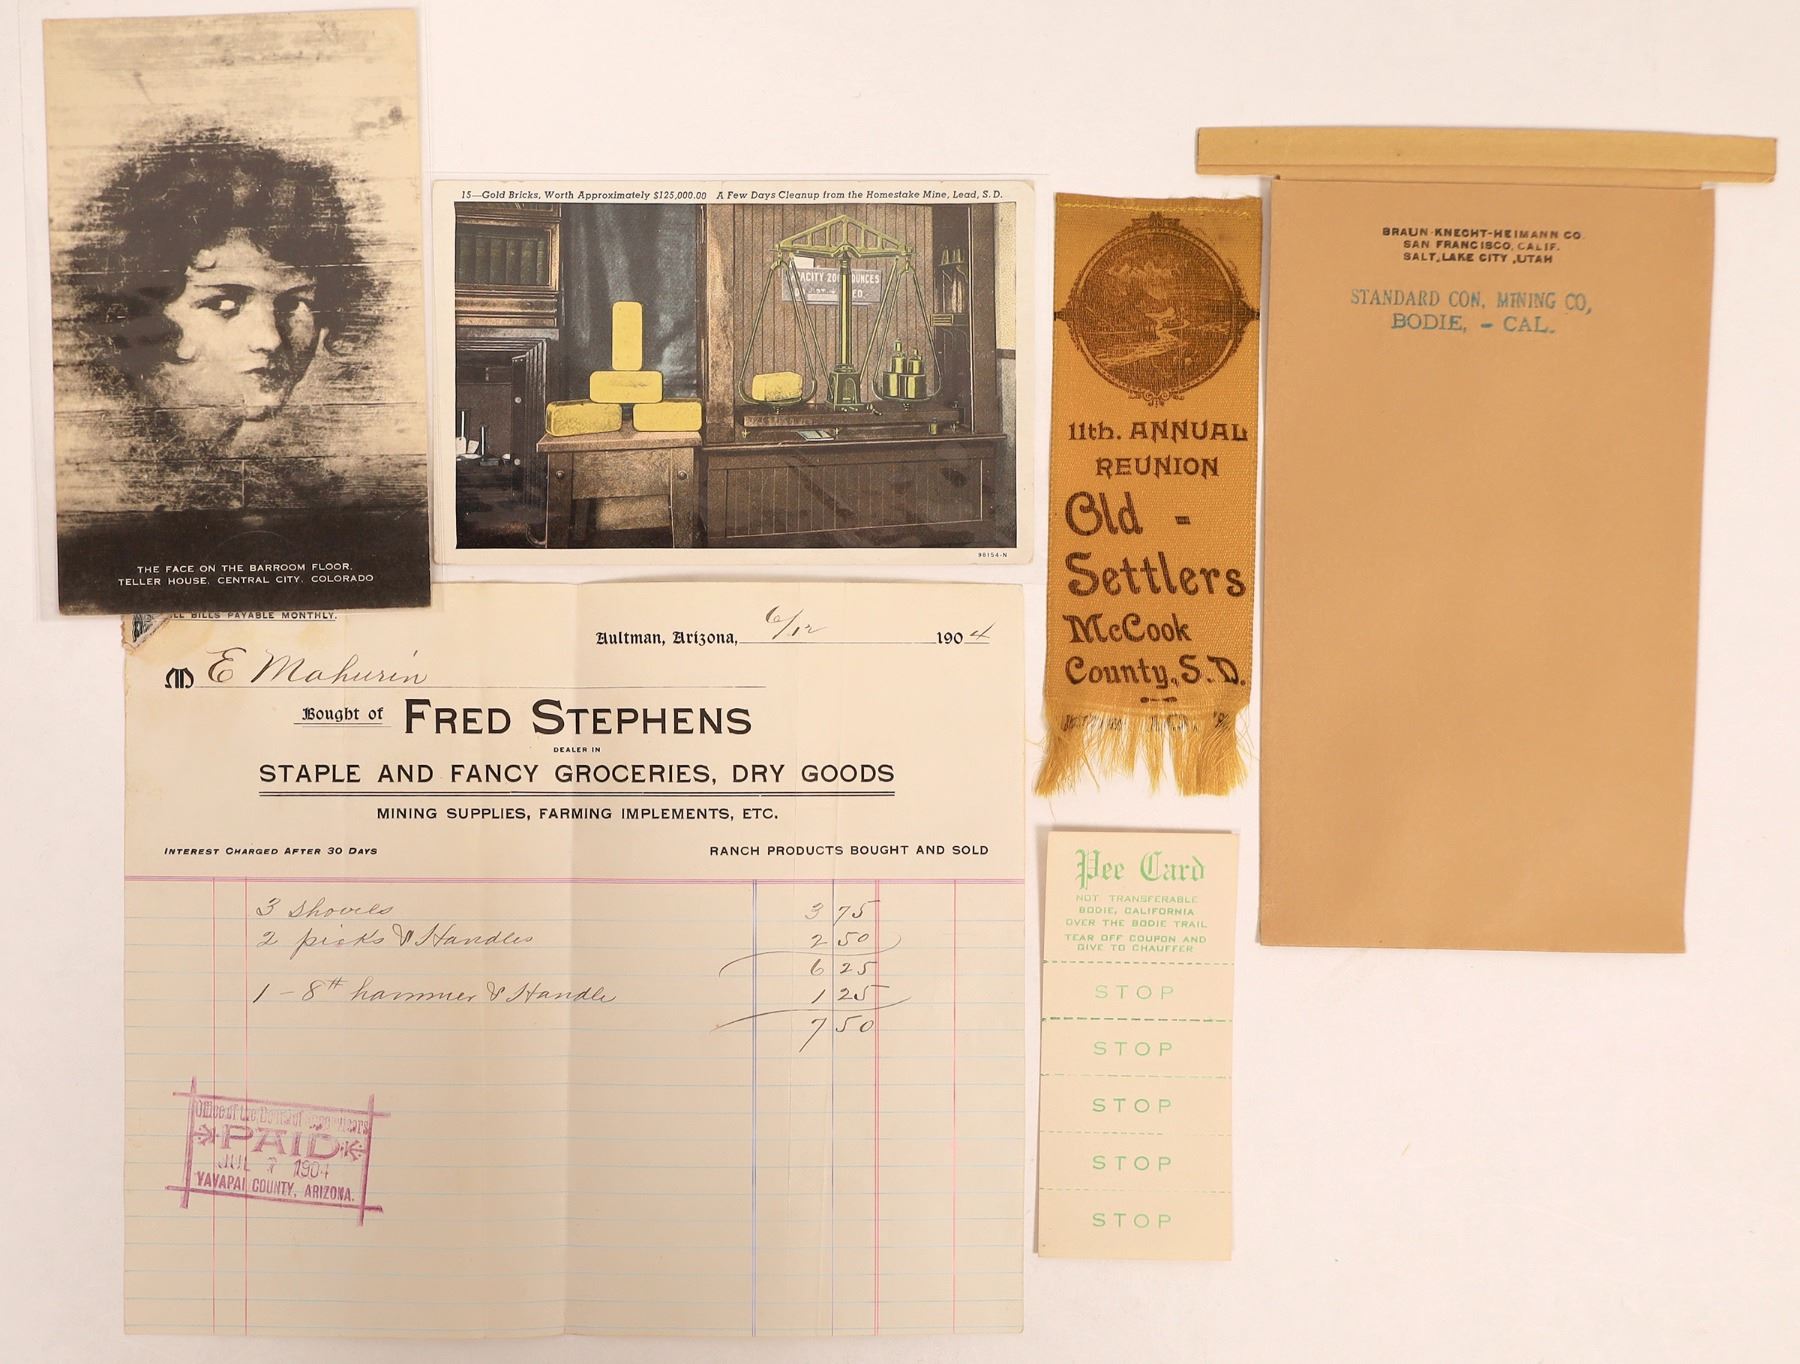 THE FACE ON THE BARROOM FLOOR,
TELLER HOUSE, CENTRAL CITY, COLORADO
15—Gold Bricks, Worth Approximately $125,000.00 A Few Days Cleanup from the Homestake Mine, Lead, S. D.
ACITY 20 OUNCES
98154-N
11th. ANNUAL
REUNION
Old -
Settlers
McCook
County, S. D.
BRAUN-KNECHT-HEIMANN CO.
SAN FRANCISCO, CALIF.
SALT LAKE CITY, UTAH
STANDARD CON. MINING CO,
BODIE, - CAL.
LL BILLS PAYABLE MONTHLY.
Aultman, Arizona, 6/12 1904
M E Mahurin
Bought of FRED STEPHENS
DEALER IN
STAPLE AND FANCY GROCERIES, DRY GOODS
MINING SUPPLIES, FARMING IMPLEMENTS, ETC.
INTEREST CHARGED AFTER 30 DAYS
RANCH PRODUCTS BOUGHT AND SOLD
3 Shovels 3 75
2 picks & Handles 2 50
6 25
1 - 8# hammer & Handle 1 25
7 50
Office of the Board of Supervisors
PAID
JUL 7 1904
YAVAPAI COUNTY, ARIZONA.
Pee Card
NOT TRANSFERABLE
BODIE, CALIFORNIA
OVER THE BODIE TRAIL
TEAR OFF COUPON AND
GIVE TO CHAUFFER
STOP
STOP
STOP
STOP
STOP